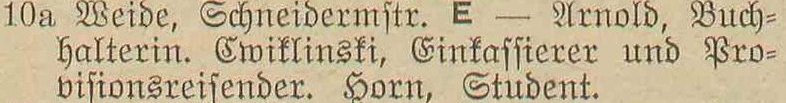 10a Weide, Schneidermstr. E — Arnold, Buch-
halterin. Cwiklinski, Einkassierer und Pro-
visionsreisender. Horn, Student.